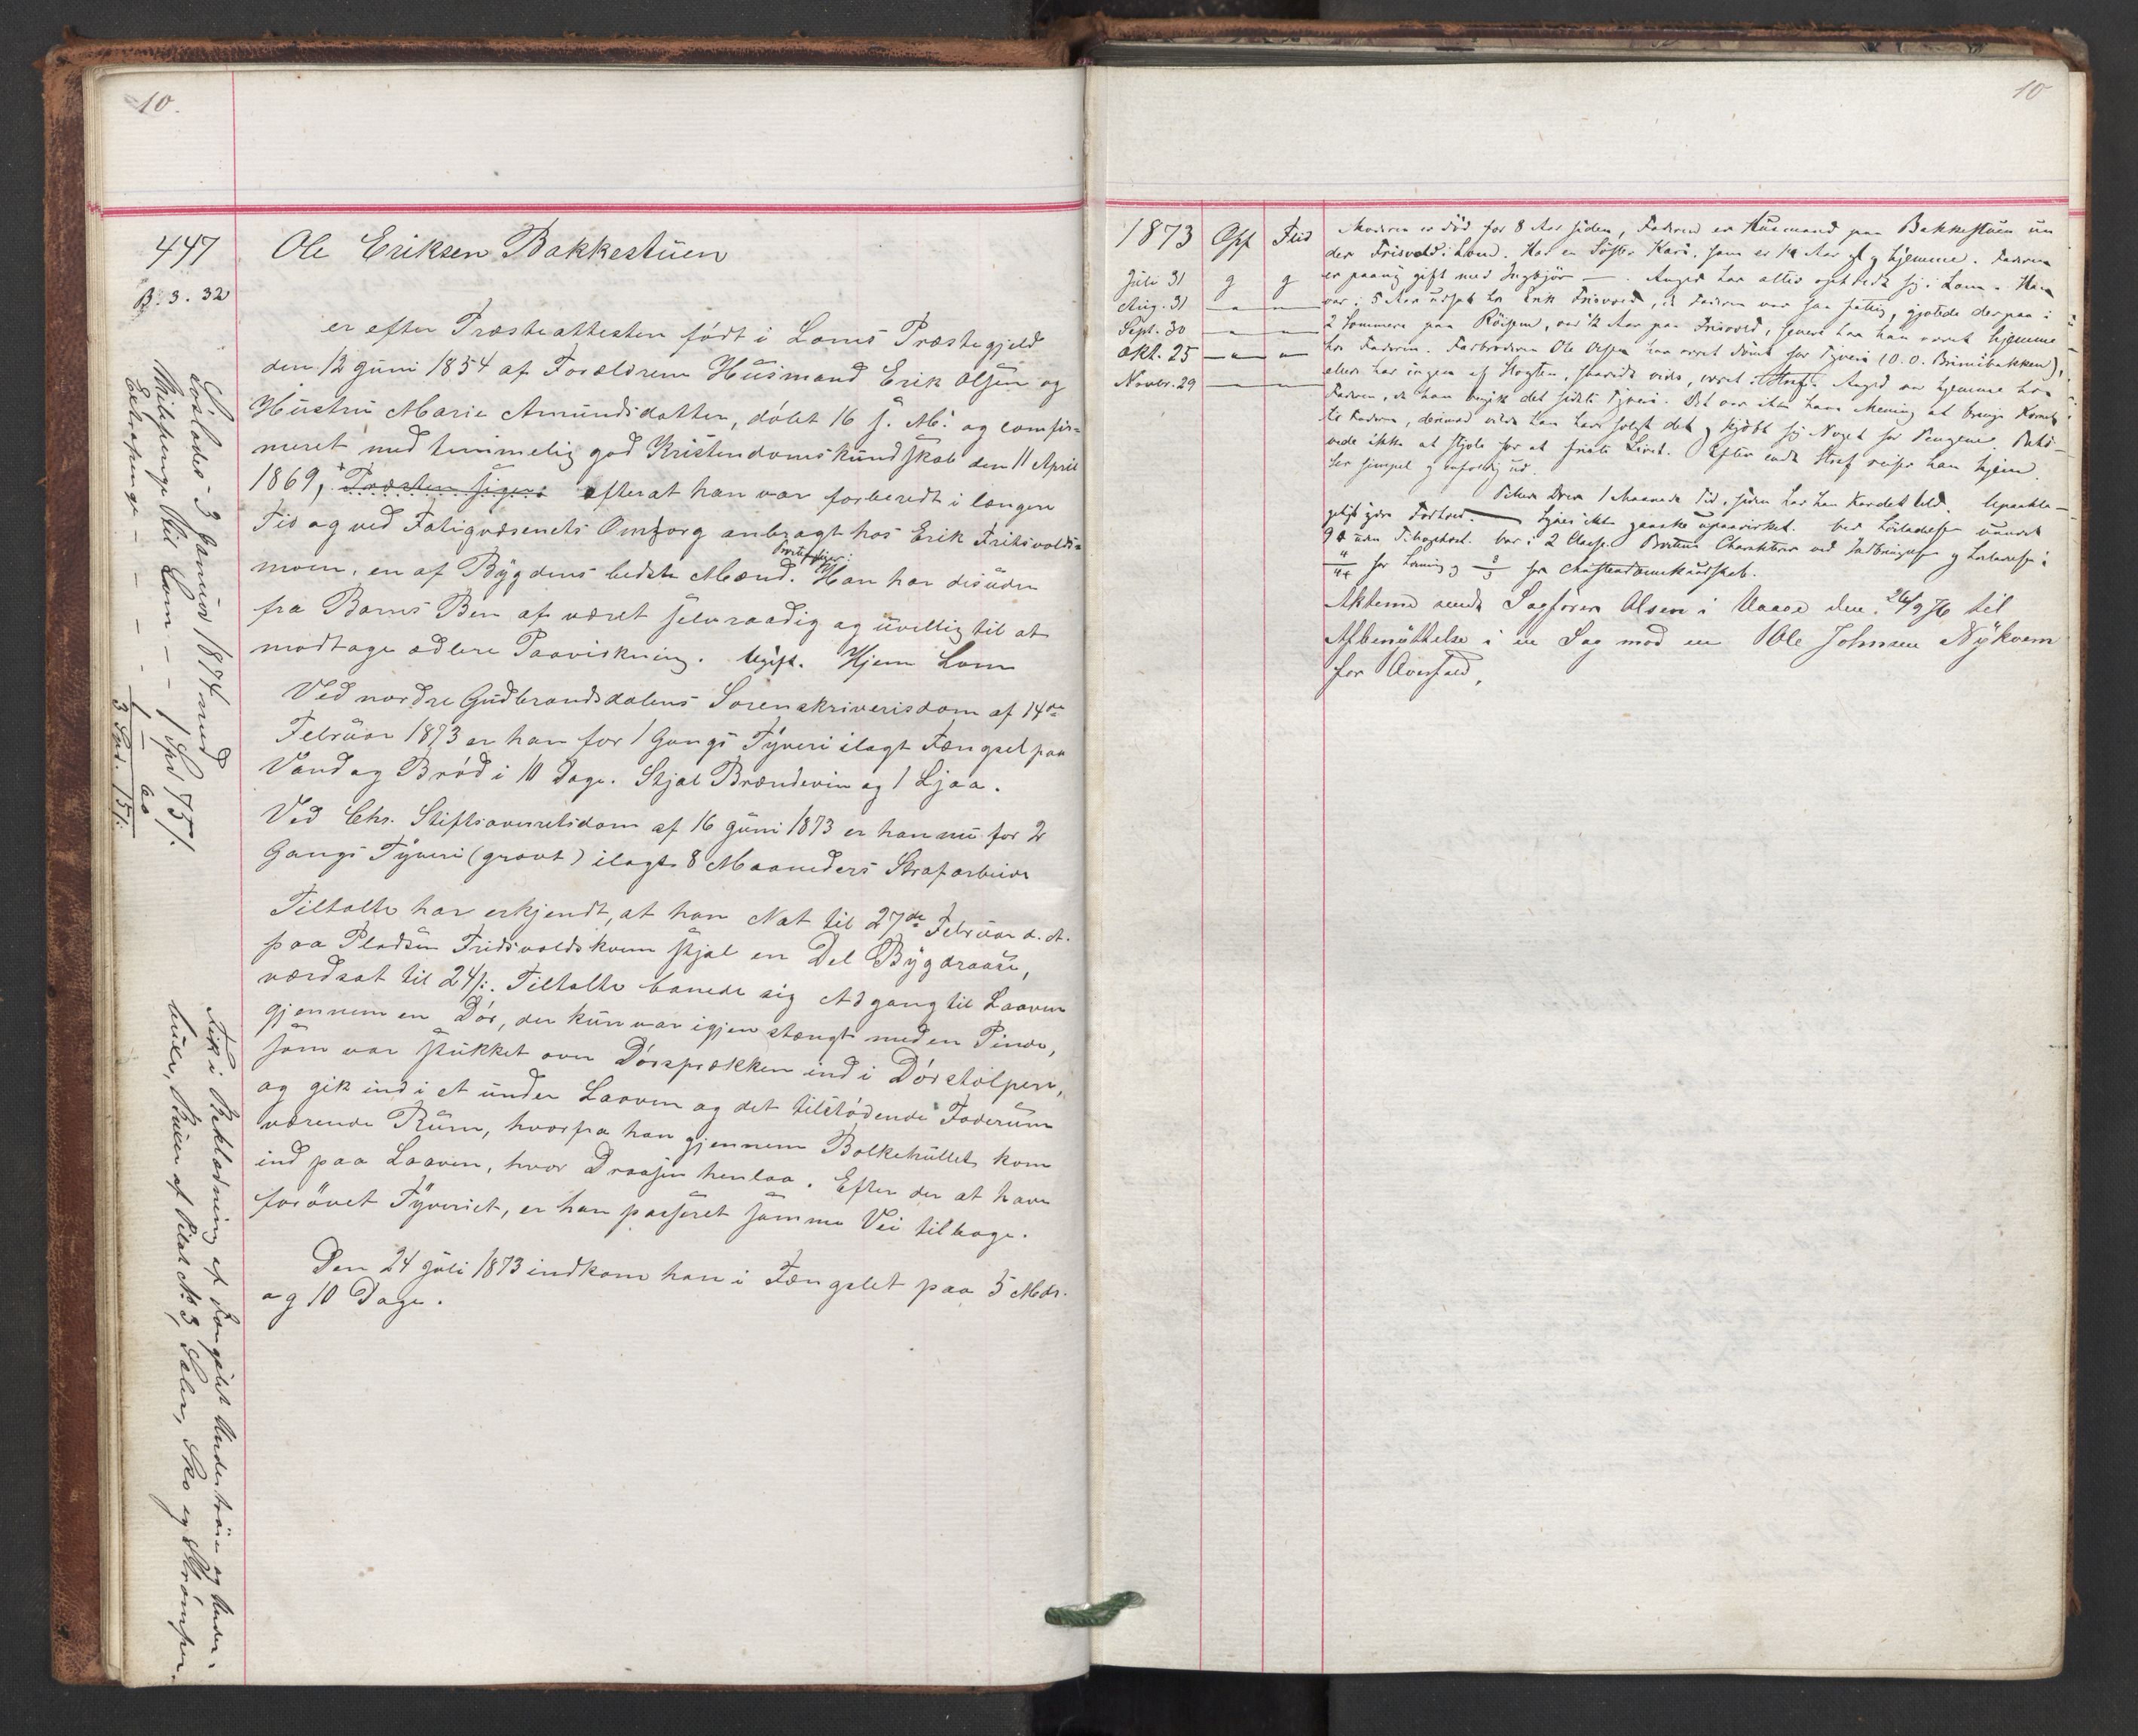 10.
447
B. 3. 32
Ole Eriksen Bakkestuen
er efter Præsteattesten født i Loms Præstegjeld
den 12 Juni 1854 af Forældrene Husmand Erik Olsen og
Hustru Marie Amundsdatter, døbt 16 s. M. og comfir=
meret med temmelig god Kristendomskundskab den 11 April
1869, Præsten siger: efterat han var forberedt i længere
Tid og ved Fatigvæsenets Omsorg anbragt hos Erik Fritsvolds=
moen, en af Bygdens bedste Mænd. Præsten siger: Han har desuden
fra Barns Ben af været selvraadig og uvillig til at
modtage ædlere Paavirkning. Ugift. Hjem Lom
Ved nordre Gudbrandsdalens Sorenskriverisdom af 14de
Februar 1873 er han for 1 Gangs Tyveri ilagt Fængsel paa
Vand og Brød i 10 Dage. Stjal Brændevin og 1 Ljaa.
Ved Chr. Stiftsoverretsdom af 16 Juni 1873 er han nu for 2
Gangs Tyveri (grovt) ilagt 8 Maaneders Strafarbeide
Tiltalte har erkjendt, at han Nat til 27de Februar d. A.
paa Pladsen Fridsvoldskvern stjal en Del Bygdraase,
værdsat til 24 s. Tiltalte banede sig Adgang til Laaven
gjennem en Dør, der kun var igjen stængt med en Pinde,
som var stukket over Dørsprækken ind i Dørstolpen,
og gik ind i et under Laaven og det tilstødende Foderum
værende Rum, hvorfra han gjennem Bolkehullet kom
ind paa Laaven, hvor Draasen henlaa. Efter der at have
forøvet Tyveriet, er han passeret samme Vei tilbage.
Den 24 Juli 1873 indkom han i Fængslet paa 5 Mdr.
og 10 Dage.
Løslades 3 Januar 1874 med
Milepenge til Lom - - 1 Spd 75 s.
Extrapenge - - - - 1 - 60
3 Spd. 15 s.
Fik i Beklædning af Fængslet Undertrøie og Under=
buxer, Buxer af Klæde No 3, Seler, Sko og Strømper.
10
1873 Opf Flid
Juli 31 g g
Aug. 31 — —
Sept. 30 — —
Okt. 25 — —
Novbr. 29 — —
Moderen er død for 8 Aar siden, Faderen er Husmand paa Bakkestuen un
der Frisvold i Lom. Har en Søster Kari, som er 14 Aar gl. og hjemme. Faderen
er paany gift med Ingbjør —. Angjæld har altid opholdt sig i Lom. Han
var i 5 Aar udsat hos Erik Frisvold, da Faderen var saa fattig, gjætede derpaa i
2 Sommere paa, var ½ Aar paa Frisvold, senere har han været hjemme
hos Faderen. Farbroderen Ole Olsen har været dømt for Tyveri (O. O. Brimibakken),
ellers har ingen af Slægten, saavidt vides, været i Straf. Angjæld var hjemme hos
Faderen, da han begik det sidste Tyveri. Det var ikke hans Mening at bringe Kornet
til Faderen, derimod vilde han have solgt det og kjøbt sig Noget for Pengene. Behø=
vede ikke at stjæle for at friste Livet. Efter endt Straf reiser han hjem.
Ser simpel og enfoldig ud.
Pillede Drev 1 Maaneds Tid, siden har han kardet Uld. Upaakla=
geligt godt Forhold. — Synes ikke ganske upaavirket. Ved Løsladelsen
94 uden Tilbagehold. Var i 2 Classe.
for Læsning og for Christendomskundskab.
Akterne sendt Sagfører Olsen i Vaage den 26/9 76 til
Afbenyttelse i en Sag mod en Ole Johnsen Nykvern
for Overfald.